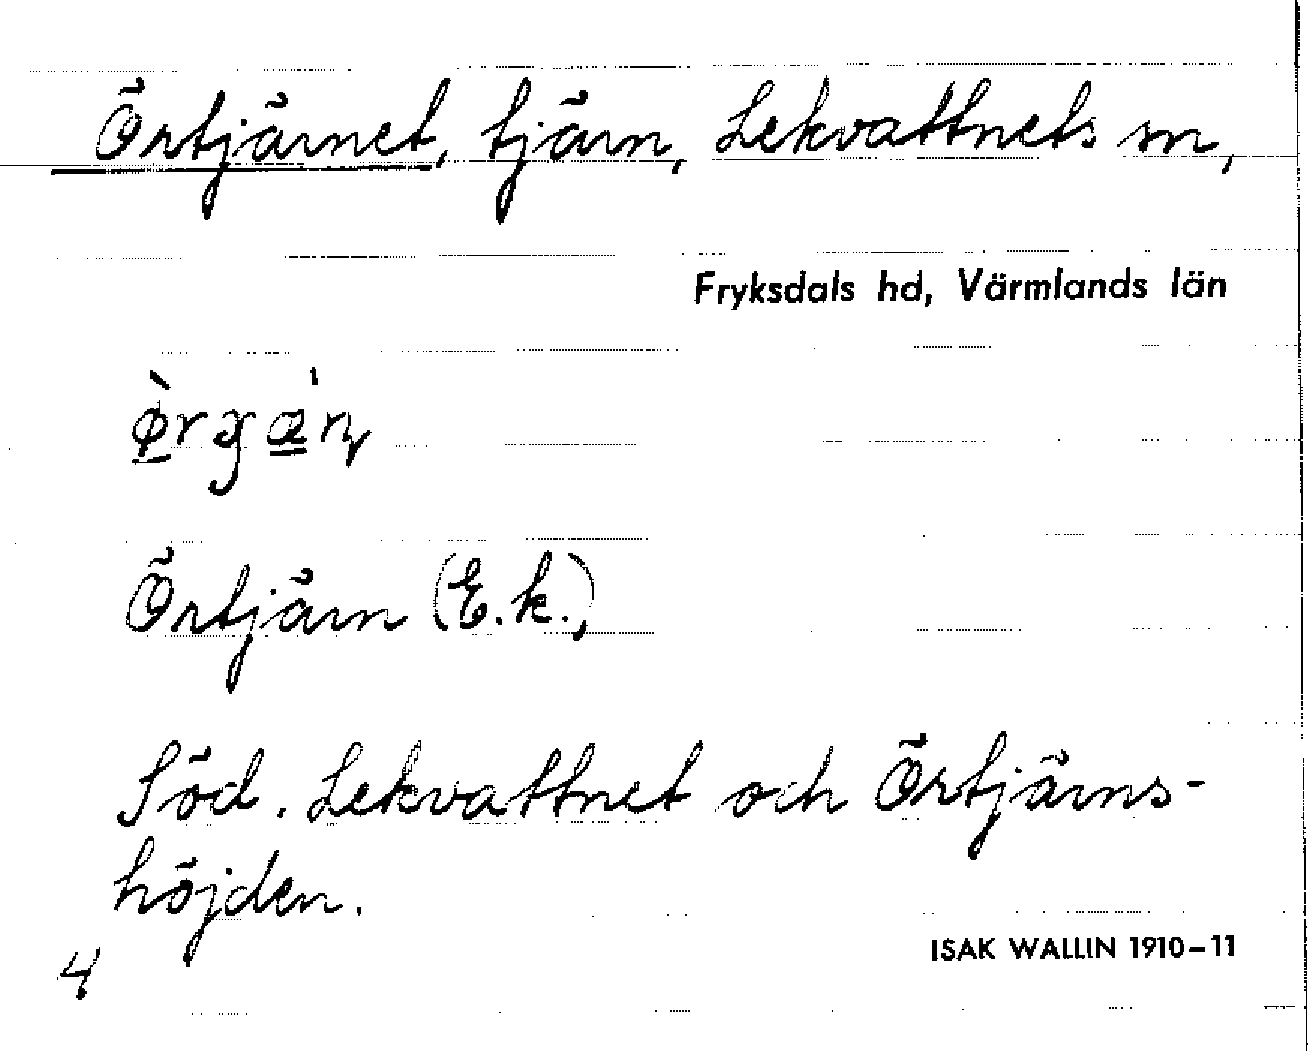 Örtjärnet, tjärn, Lekvattnets sn,
Fryksdals hd, Värmlands län
Örtjärn (E.k.),
Söd. Lekvattnet och Örtjärns-
höjden.
4
ISAK WALLIN 1910–11